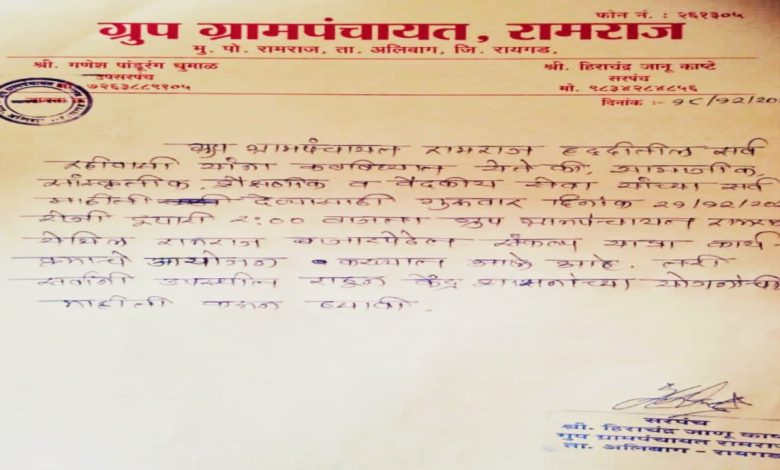 फोन नं. : २६१३०५
ग्रुप ग्रामपंचायत, रामराज
मु. पो. रामराज, ता. अलिबाग, जि. रायगड.
श्री. गणेश पांडूरंग घुमाळ
उपसरपंच
७२६३८८९१०५
श्री. हिराचंद्र जानू काष्टे
सरपंच
मो. ९८३४२८४८५६
दिनांक :- १८/१२/२०
ग्रुप ग्रामपंचायत रामराज हद्दीतील सर्व
रहीवासी यांना कळविण्यात येते की, सामाजीक
सांस्कृतीक, शैक्षणीक व वैदकीय सेवा यांच्या सर्व
माहीती देण्यासाठी शुक्रवार दिनांक २९/१२/२०२
रोजी दुपारी २:०० वाजता ग्रुप ग्रामपंचायत रामराज
येथिल रामराज बाजारपेठेत संकल्प यात्रा कार्य
क्रमाचे आयोजन करण्यात आले आहे. तरी
सर्वांनी उपस्थीत राहुन केंद्र शासनाच्या योजनांची
माहीती घ्यावी.
सरपंच
श्री. हिराचंद्र जाणू काष्टे
ग्रुप ग्रामपंचायत रामराज
ता. अलिबाग - रायगड